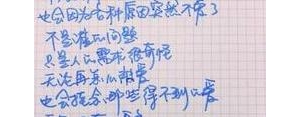 也会因为各种原因突然不爱了
不是谁的问题
只是人的需求很奇怪
无法再亲以相爱
也会接命那些得不到的爱